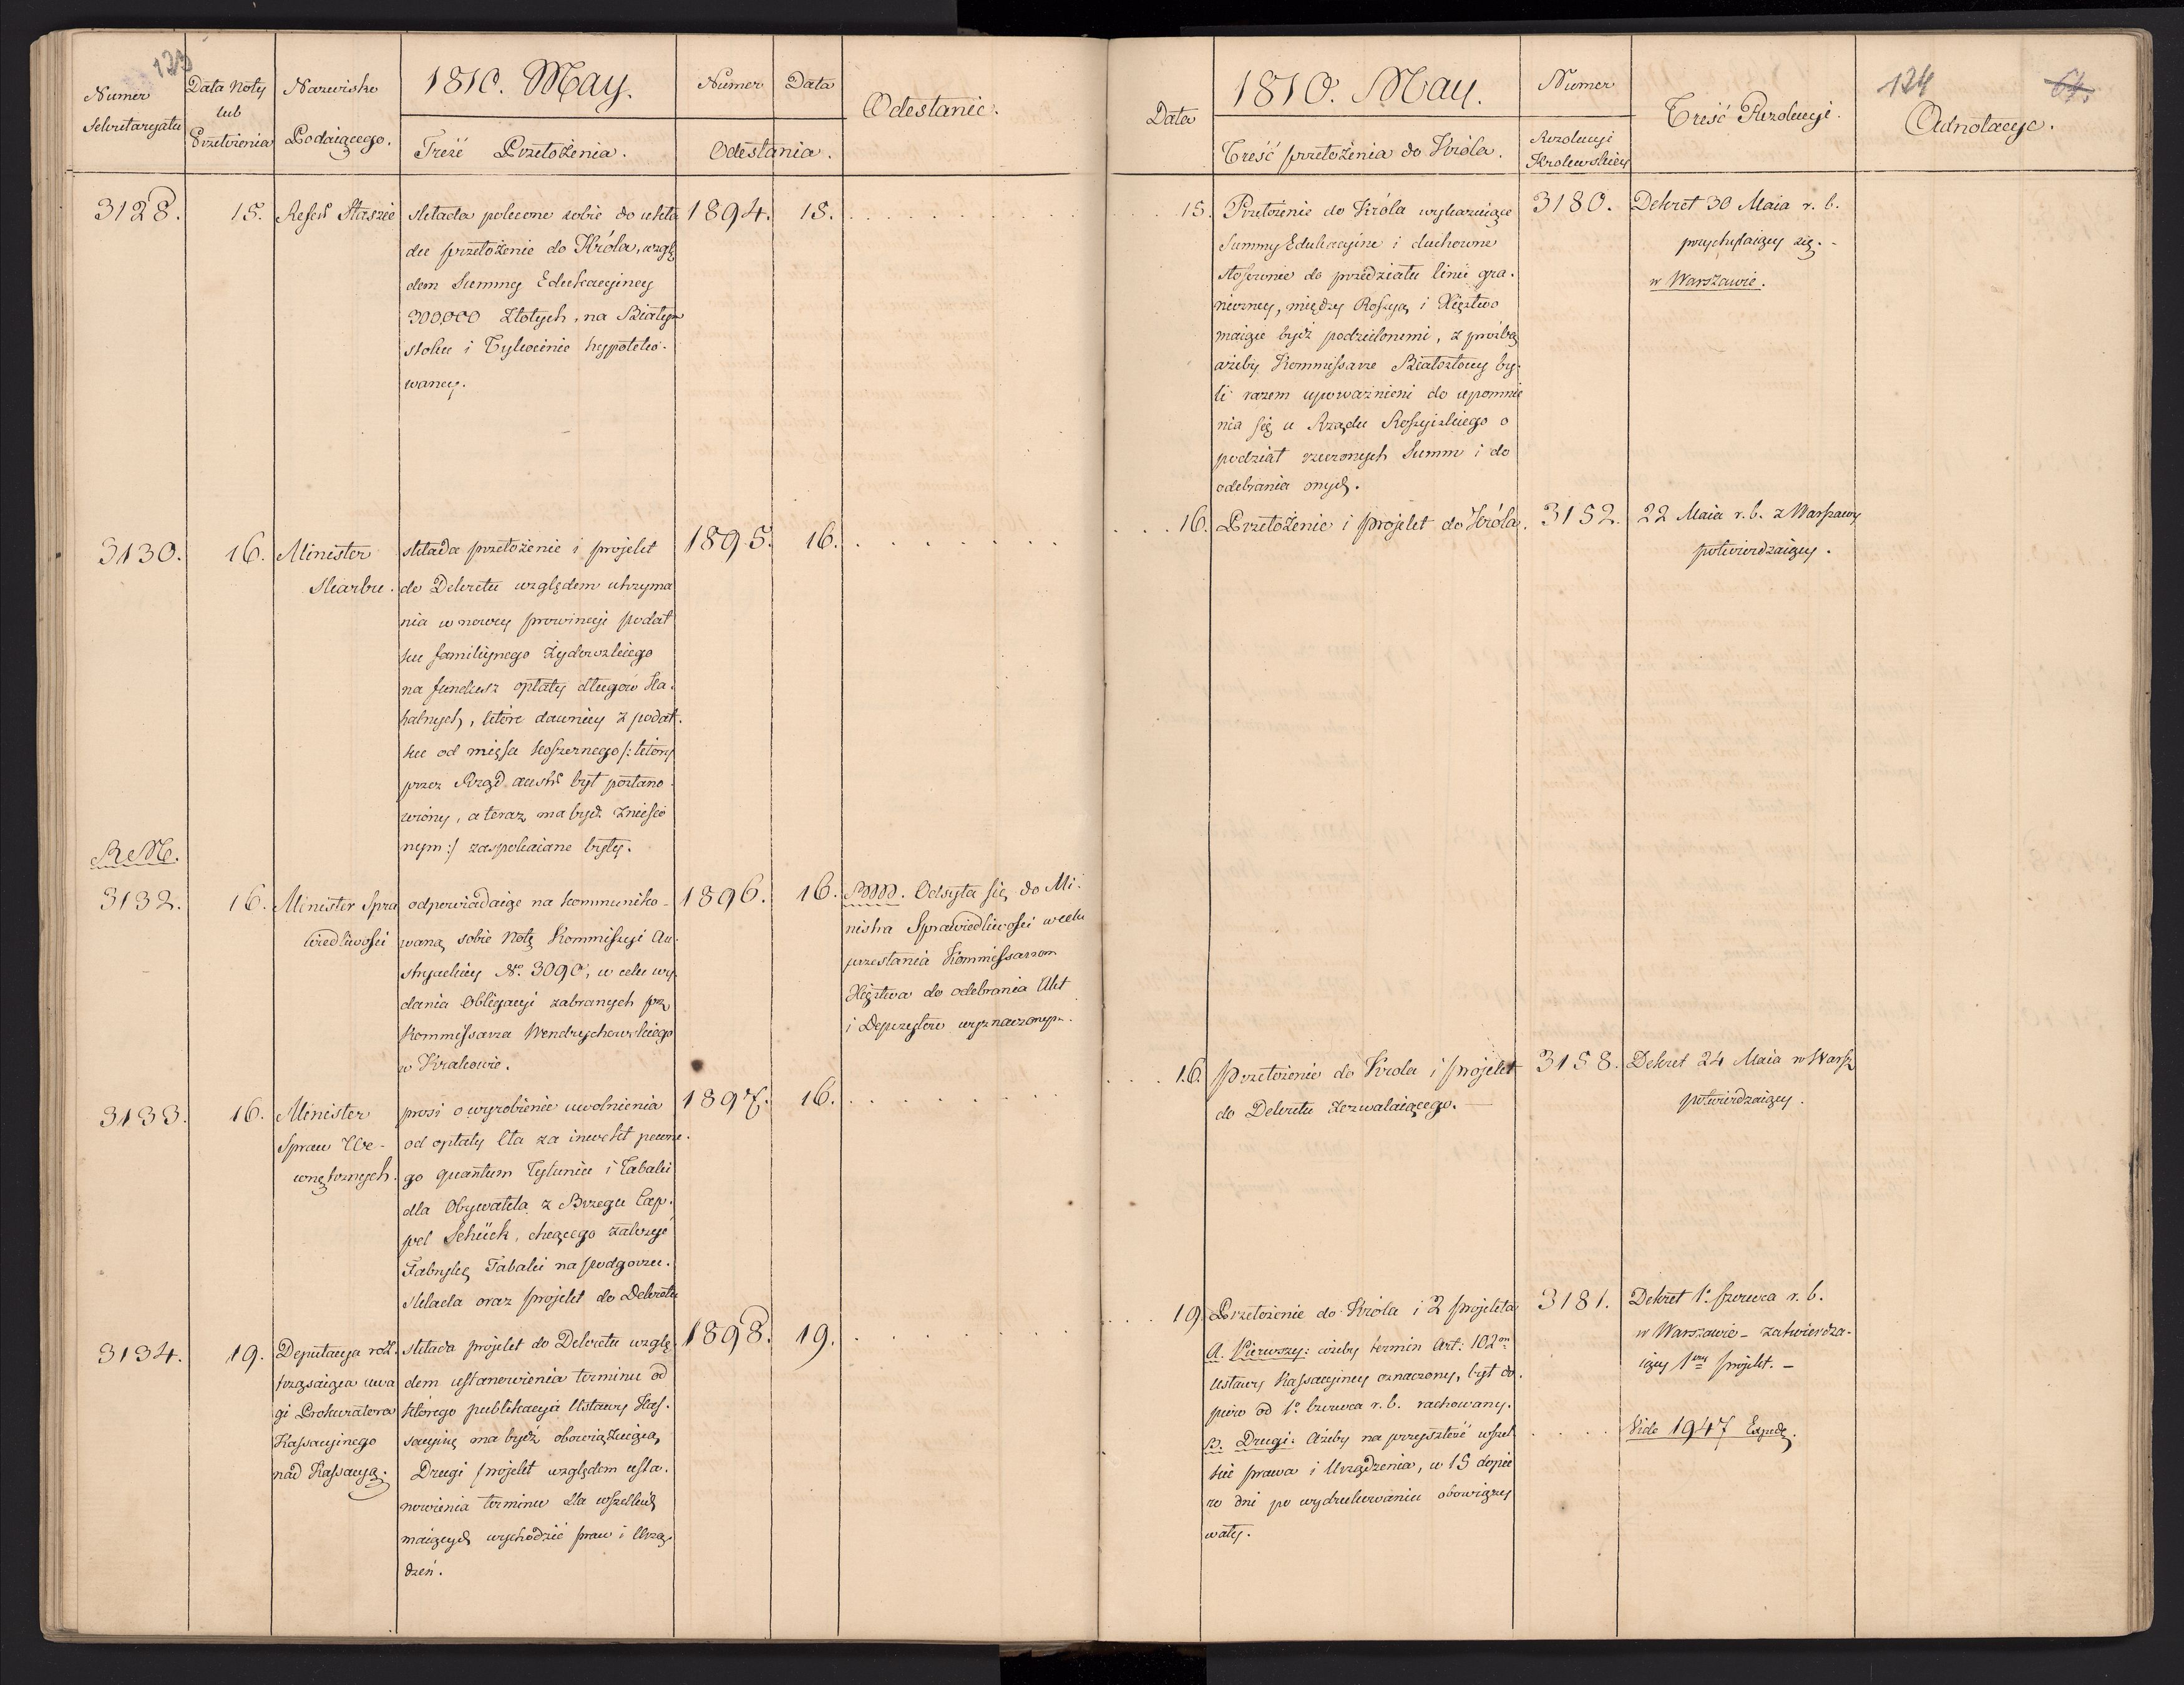 123
Numer
Sekretaryatu
Data Noty
lub
Przełożenia
Nazwisko
Podaiącego.
1810. May.
Treść Przełożenia.
Numer Data
Odesłania.
Odesłanie.
3128. 15. Refer. Staszic
składa polecone sobie do ukła
du przełożenie do Króla, wzglę
dem Summy Edukacyiney
300,000 Złotych, na Białym
stoku i Tykocinie hypoteko-
waney.
1894. 15.
3130. 16. Minister
Skarbu.
składa przełożenie i projekt
do Dekretu względem utrzyma
nia w nowey prowincyi podat
ku familiynego Żydowskiego
na fundusz opłaty długów Ka-
halnych, które dawniey z podat-
ku od mięsa koszernego /: który
przez Rząd austr. był postano-
wiony, a teraz ma bydź zniesio
nym :/ zaspokaiane były.
1895. 16.
3132. 16. Minister Spra
wiedliwości
odpowiadaiąc na kommuniko-
waną sobie Notę Kommissyi Au-
stryackiey No. 3090, w celu wy
dania Obligacyi zabranych prz.
Kommissarza Wendrychowskiego
w Krakowie.
1896. 16.
Odsyła się do Mi-
nistra Sprawiedliwości w celu
przesłania Kommissarzom
Xięstwa do odebrania Akt
i Depozytów wyznaczonym.
3133. 16. Minister
Spraw We-
wnętrznych.
prosi o wyrobienie uwolnienia
od opłaty Cła za inwekt pewne-
go quantum Tytuniu i Tabaki
dla Obywatela z Brzegu Cap-
pel Schück, chcącego założyć
Fabrykę Tabaki na podgorzu.
składa oraz projekt do Dekretu
1897. 16.
3134. 19. Deputacya roz-
trząsaiąca uwa
gi Prokuratora
Kassacyinego
nad Kassacyą.
składa projekt do Dekretu wzglę-
dem ustanowienia terminu od
którego publikacya Ustawy Kas-
sacyiney ma bydź obowiązuiąca,
Drugi projekt względem usta-
nowienia terminu dla wszelkich
maiących wychodzić praw i Urzą-
dzeń.
1898. 19.
Data
1810. May.
Treść przełożenia do Króla.
Numer
Rezolucyi
Krolewskiey
Treść Rezolucyi.
124 64.
Adnotacye.
15. Przełożenie do Króla wykazuiące
Summy Edukacyine i duchowne
stosownie do przedziału linii gra-
niczney, między Rossyą i Xięstwo
maiące bydź podzielonemi, z prośbą
ażeby Kommissarze Białostoccy by-
li razem upoważnieni do upomnie
nia się u Rządu Rossyiskiego o
podział rzeczonych Summ i do
odebrania onych.
3180. Dekret 30 Maia r. b.
przychylaiący się. -
w Warszawie.
16. Przełożenie i projekt do Króla. 3152. 22 Maia r. b. z Warszawy
potwierdzaiący.
16. przełożenie do Krola i projekt
do Dekretu zezwalaiącego.
3158. Dekret 24 Maia w Warsz.
potwierdzaiący.
19. Przełożenie do Króla i 2 projekta
A. Pierwszy: ażeby termin Art: 102m
Ustawy Kassacyiney oznaczony, był do-
piero od 1o Czerwca r. b. rachowany.
B. Drugi. Ażeby na przyszłość wszel
kie prawa i Urządzenia, w 15 dopie
ro dni po wydrukowaniu obowiązy
wały.
3181. Dekret 1o Czerwca r. b.
w Warszawie - zatwierdza-
iący 1wszy projekt. -
Vide 1947 Exped.